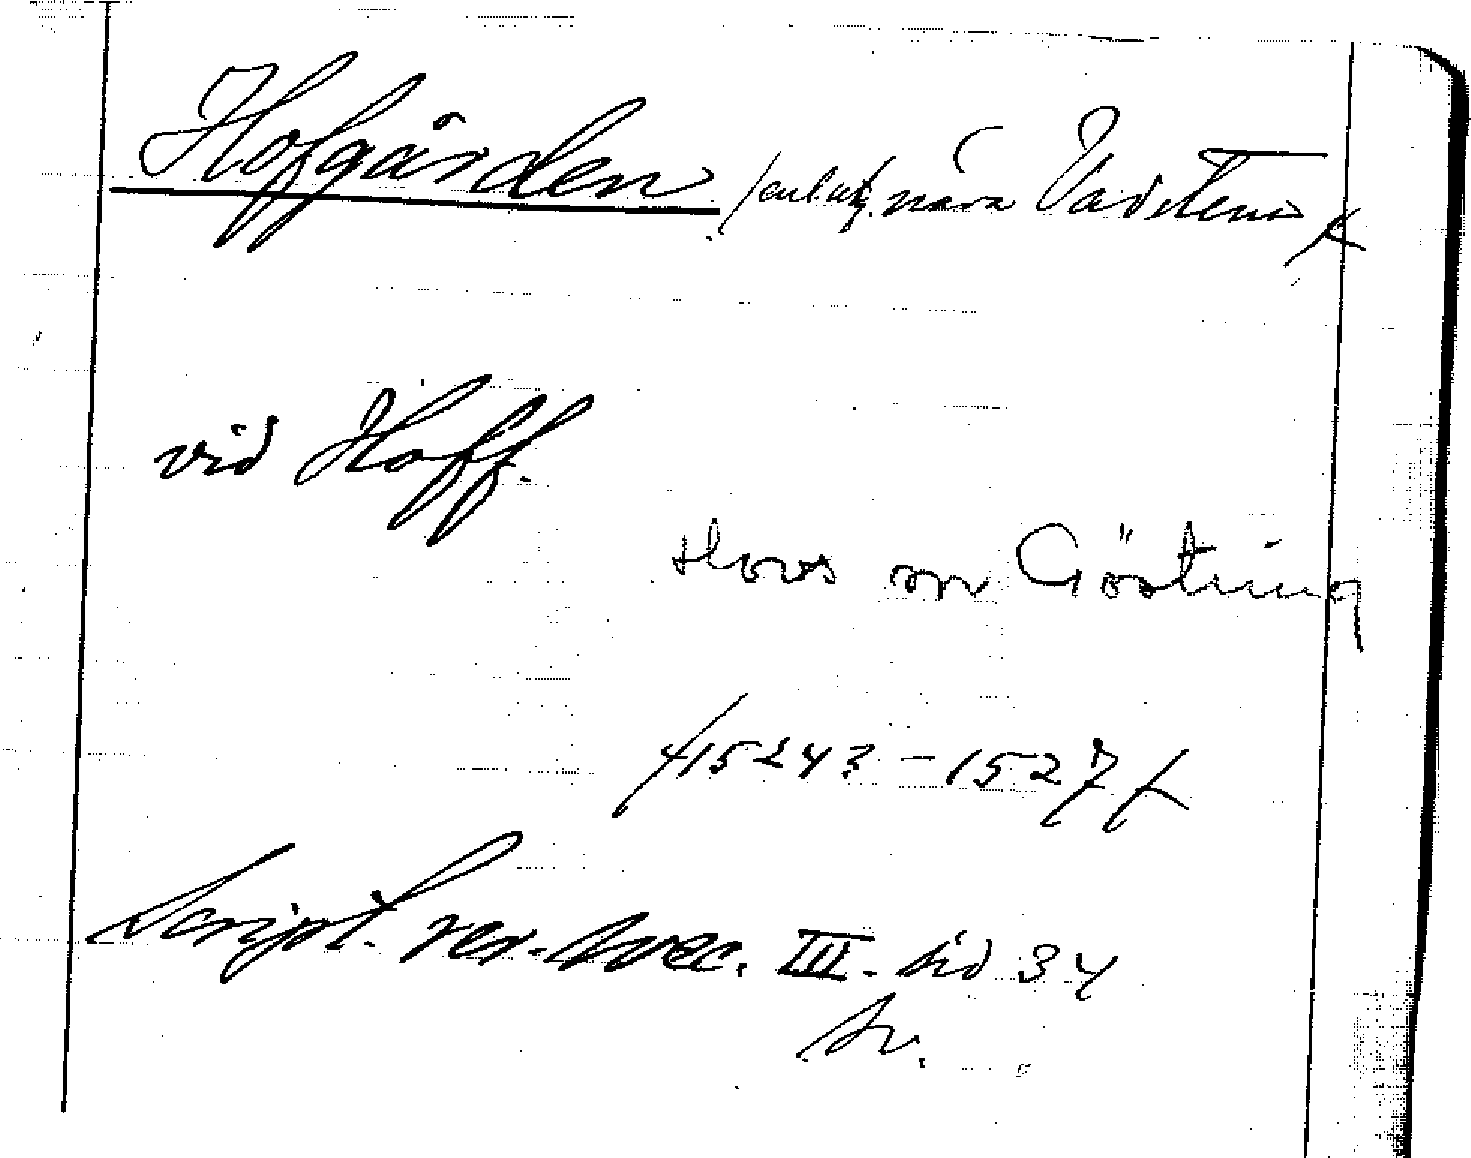 Hofgården / nära Vadstena /
vid Hoff.
Hovs sn Göstring
/15243-1527/
Script. rer. svec. III. sid 34
sv.